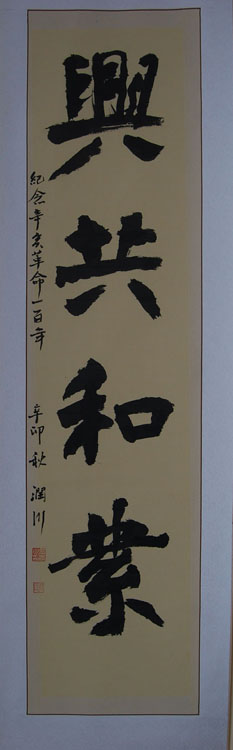 興共和業
紀念辛亥革命一百年
辛卯秋 潤川